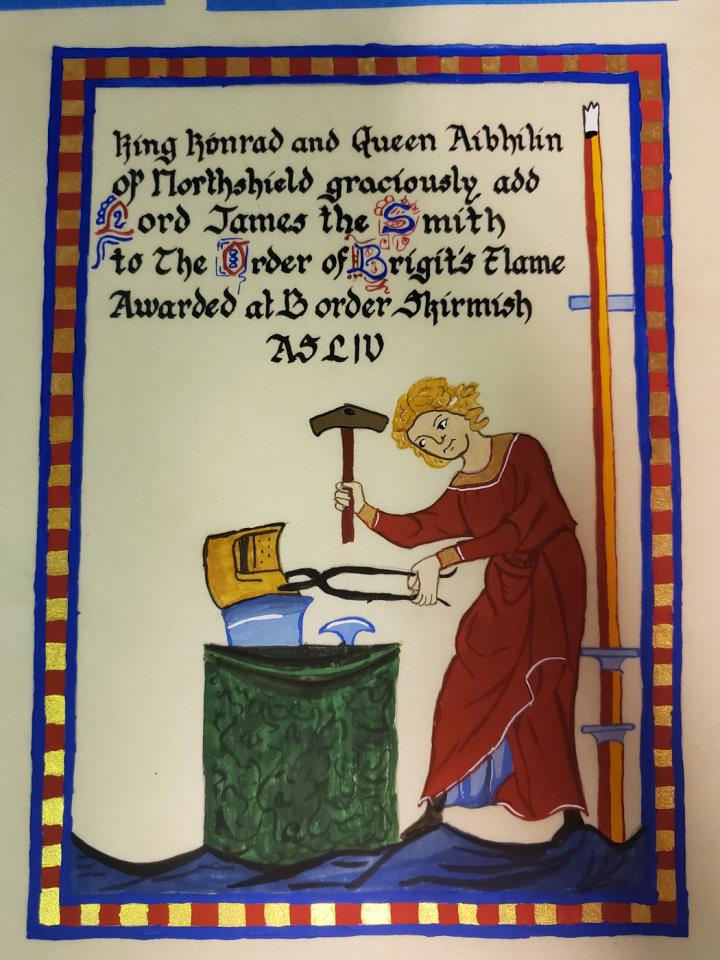 King Konrad and Queen Aibhilin
of Northshield graciously add
Lord James the Smith
to The Order of Brigit's Flame
Awarded at Border Skirmish
AS LIV